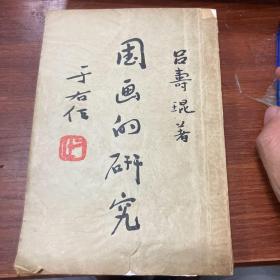 吕壽琨著
国画的研究
于右任